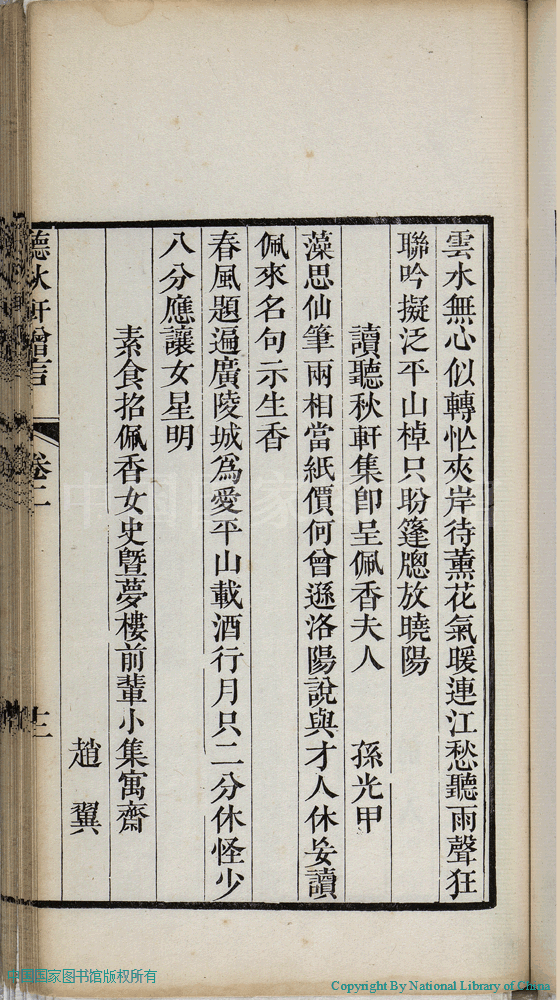 雲水無心似轉忙夾岸待薰花氣暖連江愁聽雨聲狂
聯吟擬泛平山棹只盼篷牕放曉陽
讀聽秋軒集卽呈佩香夫人 孫光甲
藻思仙筆兩相當紙價何曾遜洛陽說與才人休妄讀
佩來名句示生香
春風題遍廣陵城為愛平山載酒行月只二分休怪少
八分應讓女星明
素食招佩香女史曁夢樓前輩小集寓齋
趙翼
聽秋軒贈言 卷二 十二
中国国家图书馆版权所有
Copyright By National Library of China